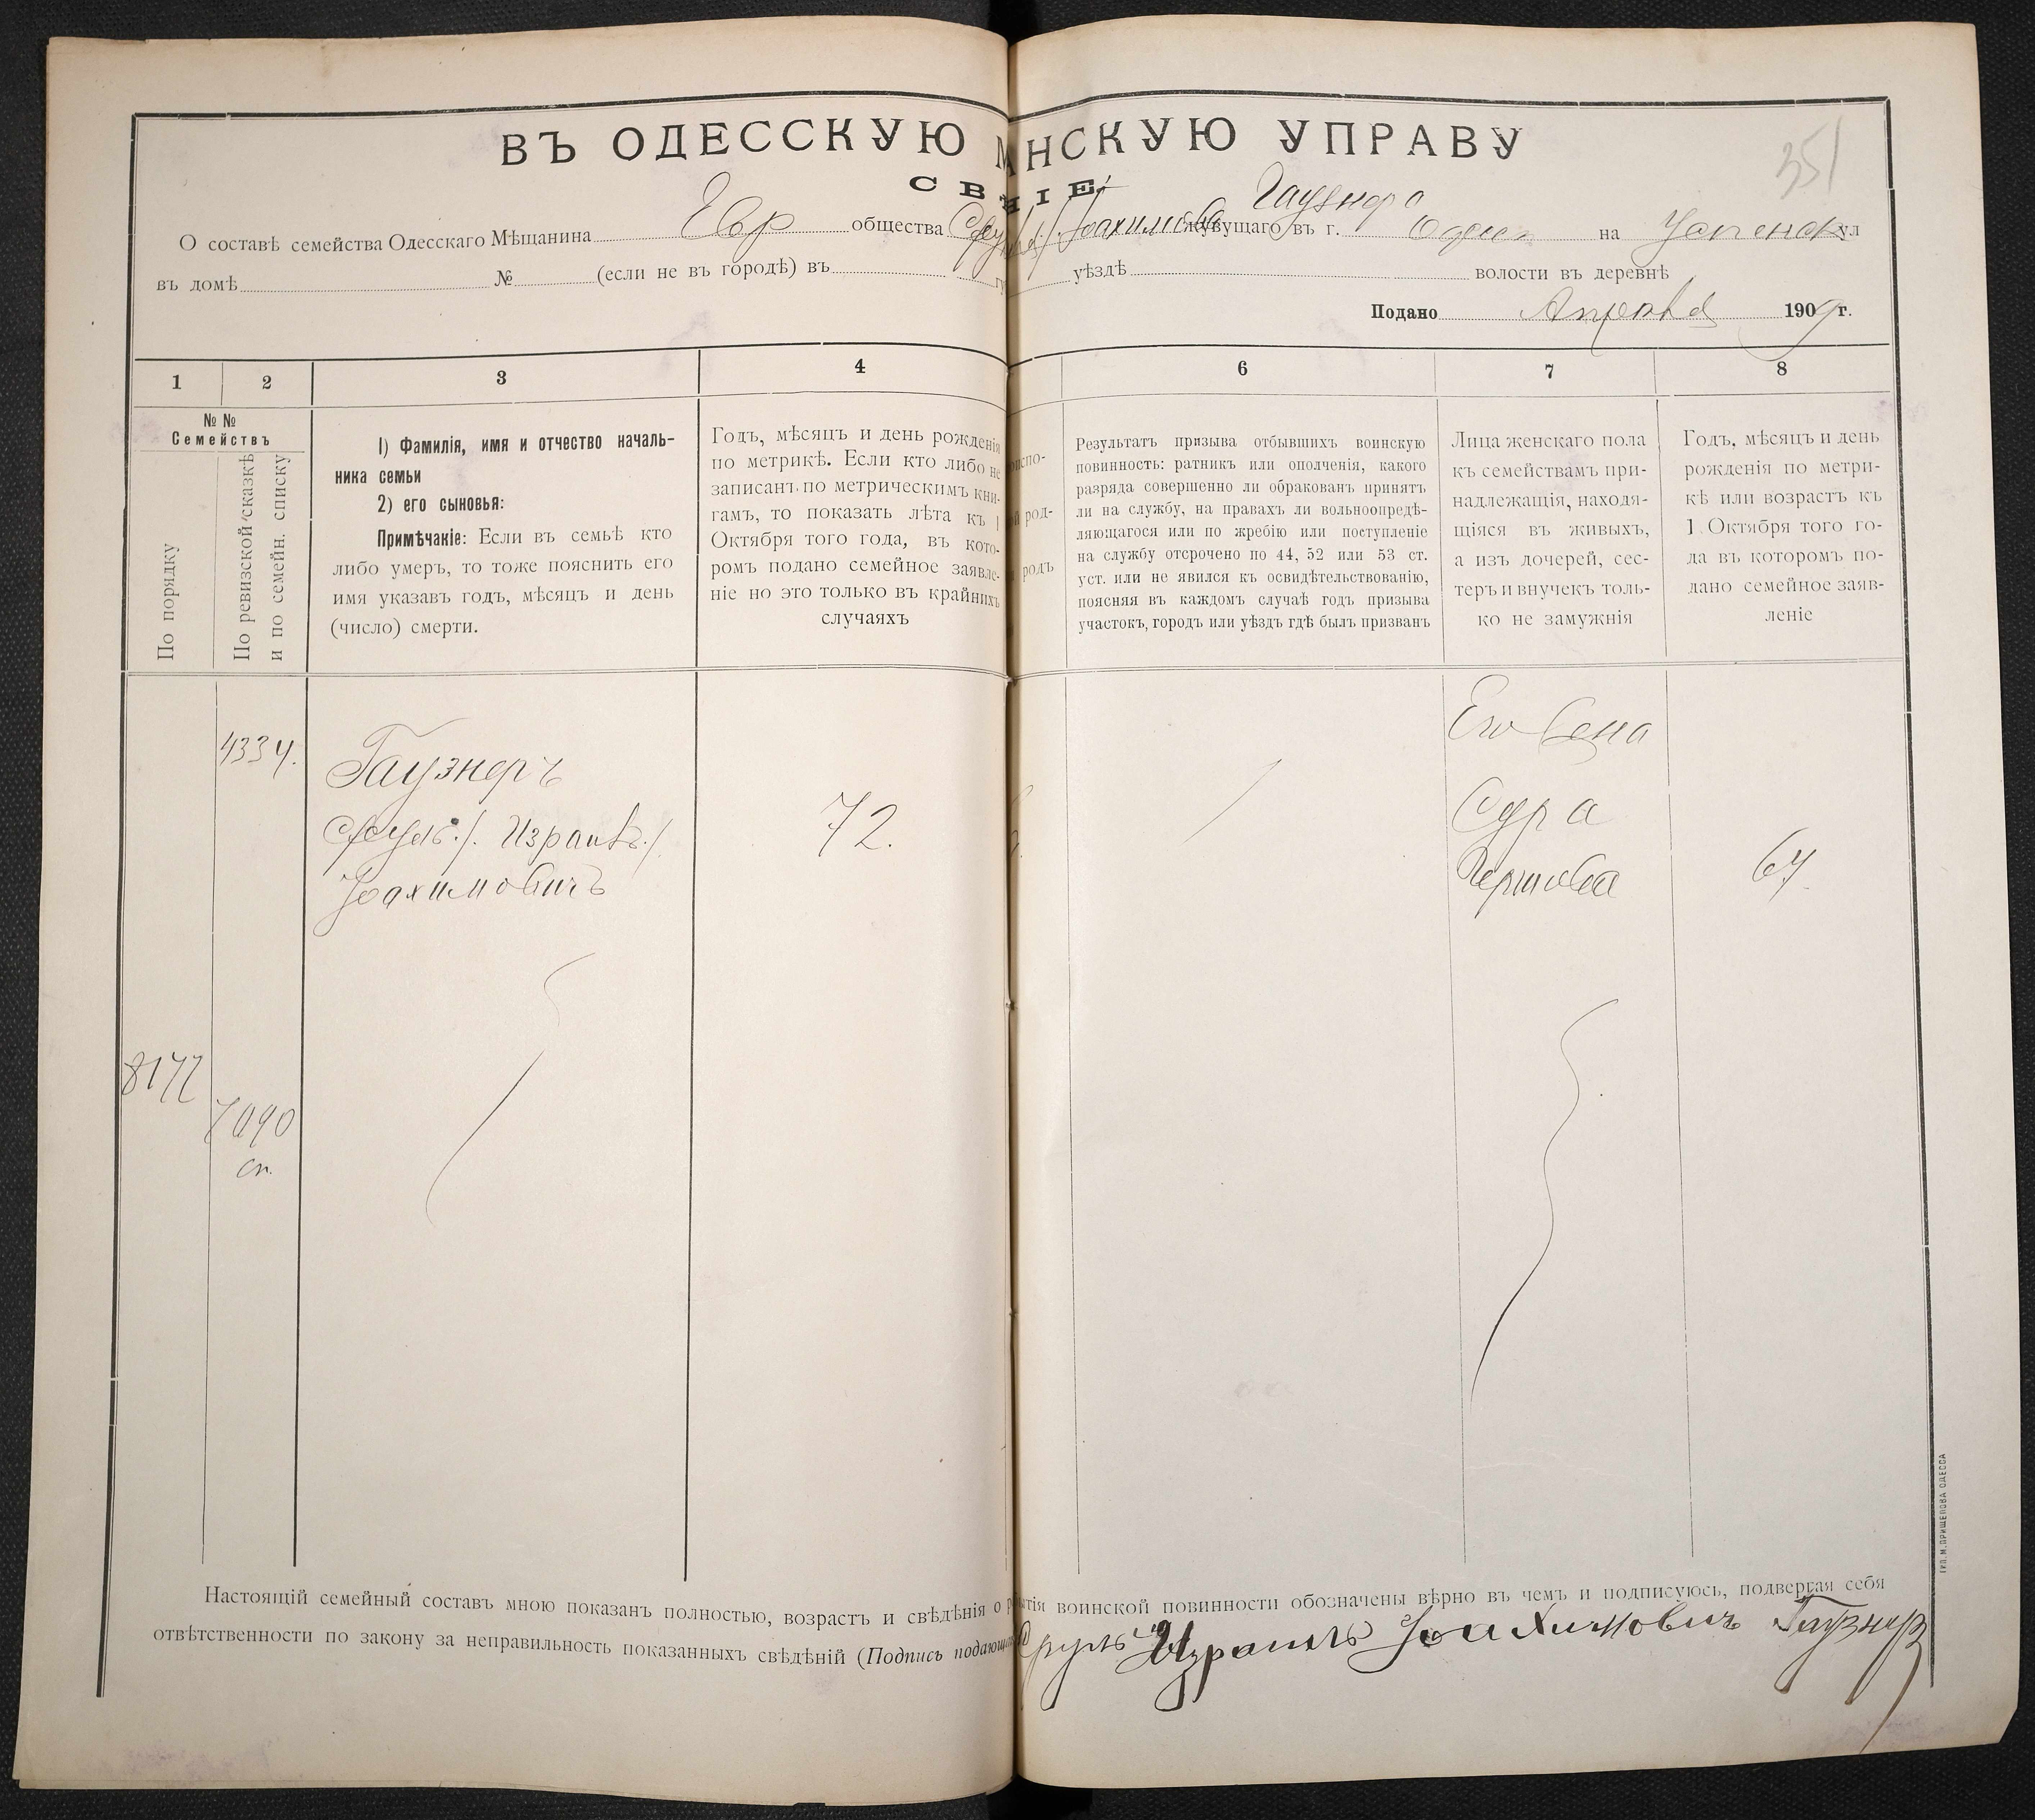 351
ВЪ ОДЕССКУЮ М НСКУЮ УПРАВУ
СВ НІЕ
Гаузнера
О составѣ семейства Одесскаго Мѣщанина Евр общества Сруль /. Іоахимова живущаго въ г. Одесс на Успенск ул
въ домѣ № (если не въ городѣ) въ гу уѣздѣ волости въ деревнѣ
Подано Апрѣля 1909 г.
1 2 3 4 6 7 8
№ № Семействъ
По порядку
По ревизской сказкѣ
и по семейн. списку
1) Фамилія, имя и отчество началь-
ника семьи
2) его сыновья:
Примѣчаніе: Если въ семьѣ кто
либо умеръ, то тоже пояснить его
имя указавъ годъ, мѣсяцъ и день
(число) смерти.
Годъ, мѣсяцъ и день рожденія
по метрикѣ. Если кто либо не
записанъ по метрическимъ кни-
гамъ, то показать лѣта къ 1
Октября того года, въ кото-
ромъ подано семейное заявле-
ніе но это только въ крайнихъ
случаяхъ
испо-
род-
родъ
Результатъ призыва отбывшихъ воинскую
повинность: ратникъ или ополченія, какого
разряда совершенно ли обракованъ принятъ
ли на службу, на правахъ ли вольноопредѣ-
ляющагося или по жребію или поступленіе
на службу отсрочено по 44, 52 или 53 ст.
уст. или не явился къ освидѣтельствованію,
поясняя въ каждомъ случаѣ годъ призыва
участокъ, городъ или уѣздъ гдѣ былъ призванъ
Лица женскаго пола
къ семействамъ при-
надлежащія, находя-
щіяся въ живыхъ,
а изъ дочерей, сес-
теръ и внучекъ толь-
ко не замужнія
Годъ, мѣсяцъ и день
рожденія по метри-
кѣ или возрастъ къ
1 Октября того го-
да въ которомъ по-
дано семейное заяв-
леніе
4334.
Гаузнеръ
Сруль ./. Израиль ./.
Іоахимовичъ
72.
Его жена
Сура
Гершова
67.
8177
7090
сп.
Настоящій семейный составъ мною показанъ полностью, возрастъ и свѣдѣнія о тія воинской повинности обозначены вѣрно въ чемъ и подписуюсь, подвергая себя
отвѣтственности по закону за неправильность показанныхъ свѣдѣній (Подпись подающаго Сруль Израиль Іоахимовичъ Гаузнеръ
ТИП. М. ПРИЩЕПОВА ОДЕССА